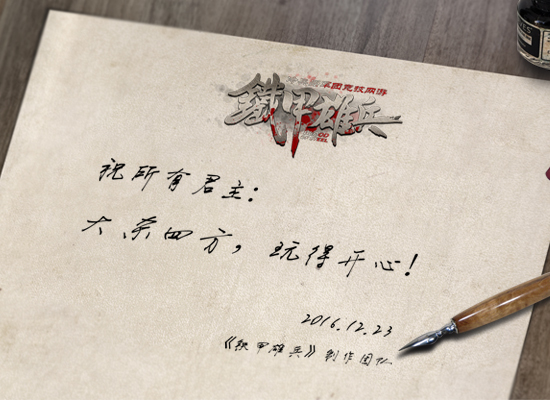 军团竞技网游
鐵甲雄兵
祝所有君主:
大杀四方,玩得开心!
2016.12.23
《铁甲雄兵》制作团队